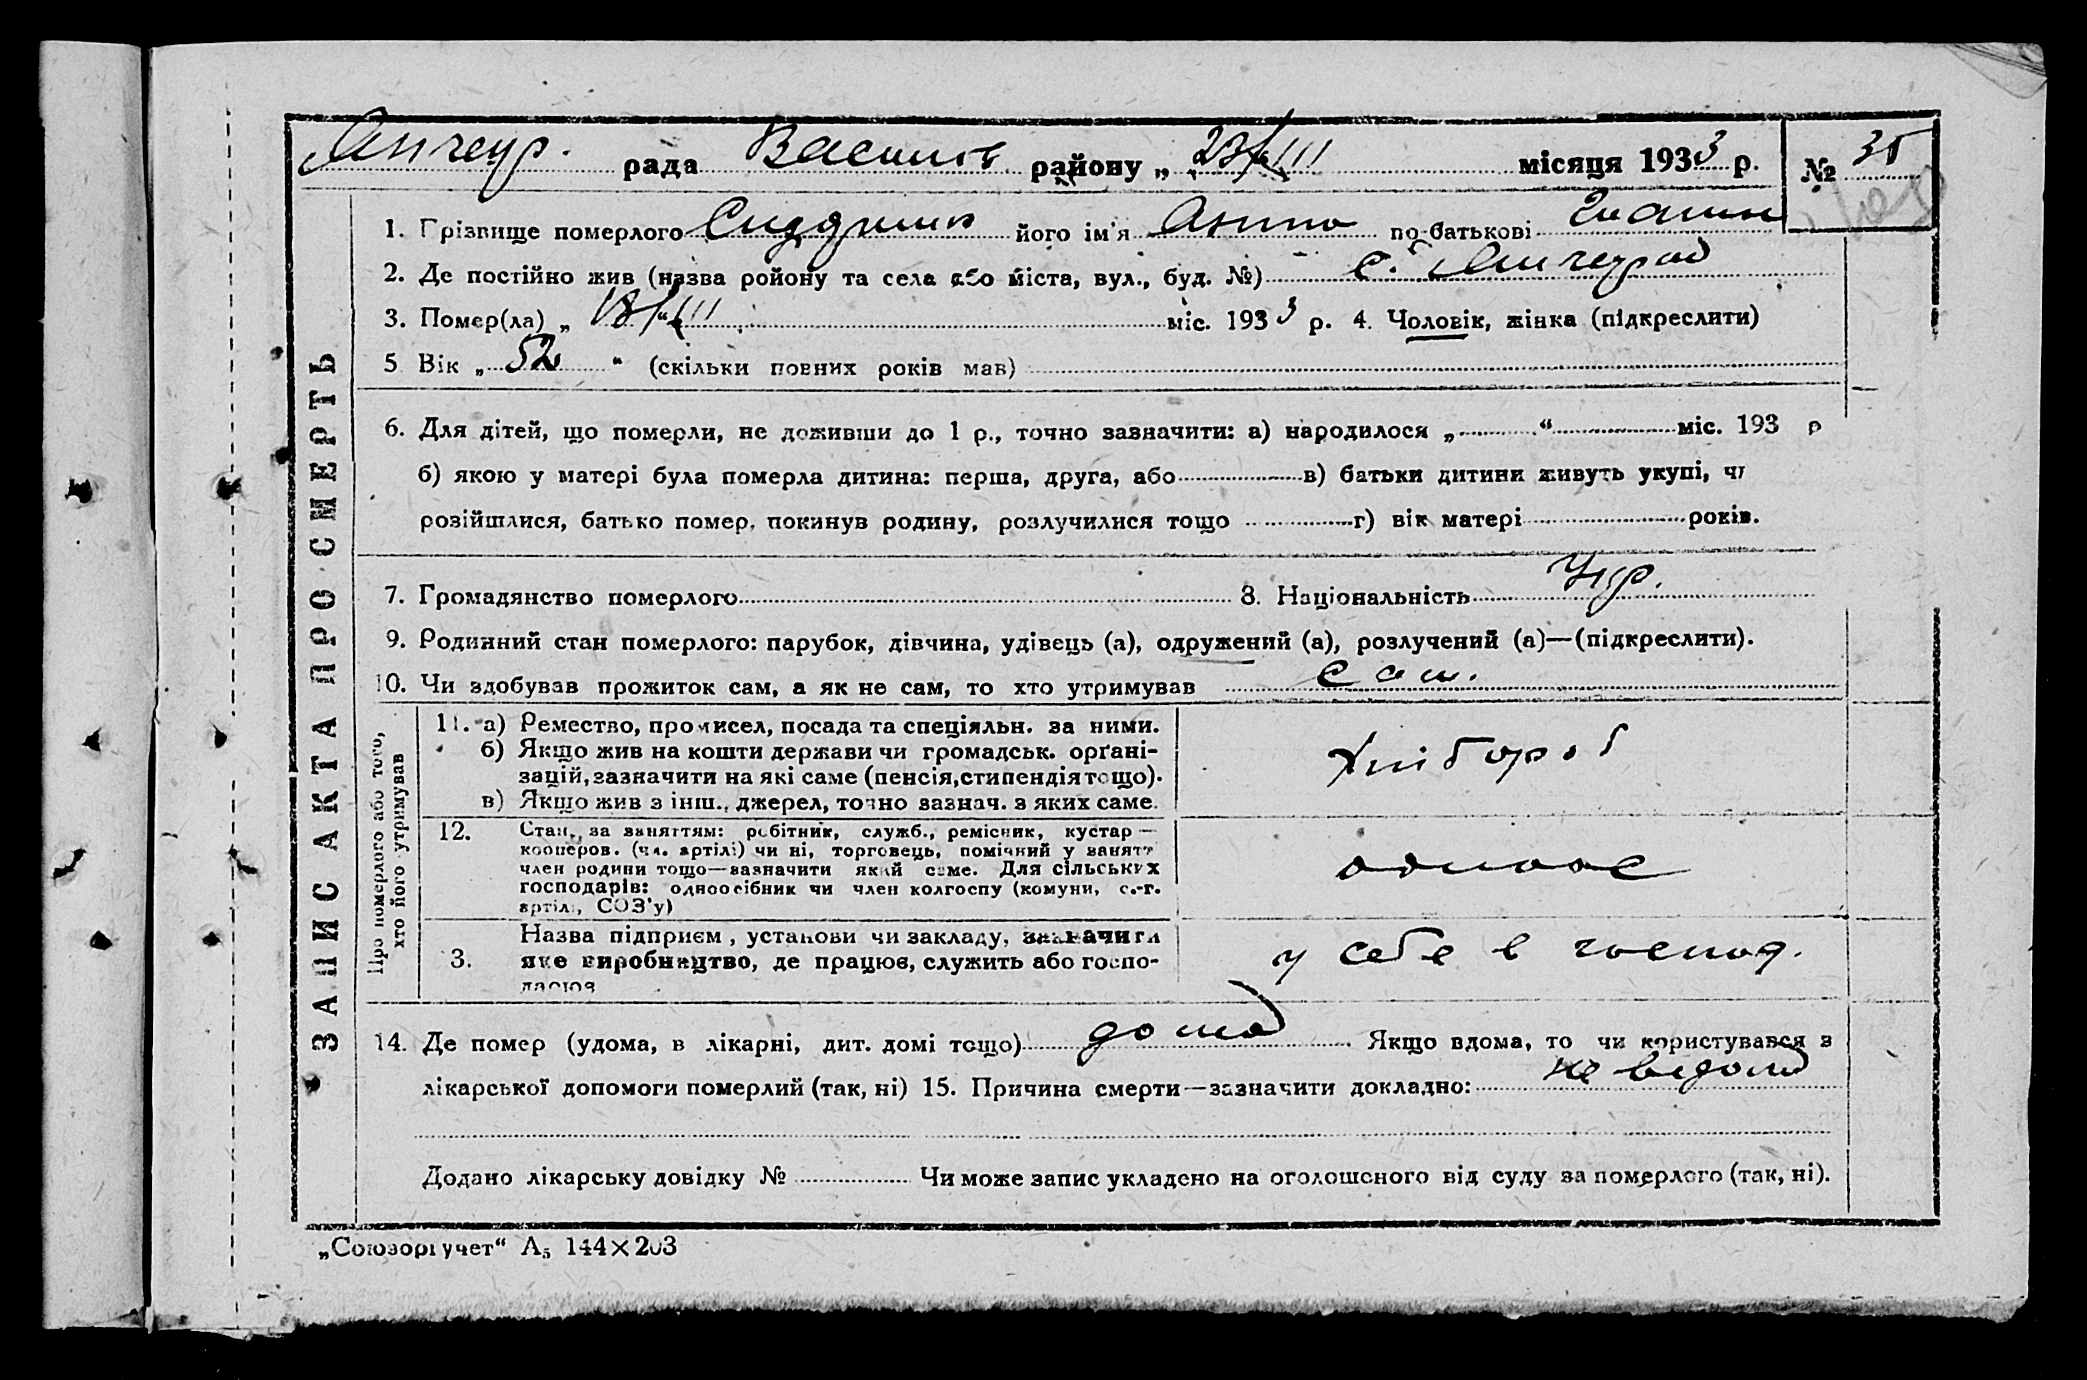 Янчекр. рада Васильк району „ 23/III місяця 1933 р. № 35
1. Прізвище померлого його ім'я по-батькові
2. Де постійно жив (назва ройону та села або міста, вул., буд. №) с.
3. Помер(ла) „ /III міс. 1933 р. 4. Чоловік, жінка (підкреслити)
5 Вік „ 52 “ (скільки повних років мав)
6. Для дітей, що померли, не доживши до 1 р., точно зазначити: а) народилося „ “ міс. 193 р
б) якою у матері була померла дитина: перша, друга, або в) батьки дитини живуть укупі, чи
розійшлися, батько помер, покинув родину, розлучилися тощо г) вік матері років.
7. Громадянство померлого 8. Національність Укр.
9. Родинний стан померлого: парубок, дівчина, удівець (а), одружений (а), розлучений (а)—(підкреслити).
10. Чи здобував прожиток сам, а як не сам, то хто утримував сам.
ЗАПИС АКТА ПРО СМЕРТЬ
Про померлого або того,
хто його утримував
11. а) Ремество, промисел, посада та спеціяльн. за ними.
б) Якщо жив на кошти держави чи громадськ. орґані-
зацій, зазначити на які саме (пенсія, стипендія тощо).
в) Якщо жив з інш., джерел, точно зазнач. з яких саме.
хлібороб
12. Стан, за заняттям: робітник, служб., ремісник, кустар —
кооперов. (чл. артілі) чи ні, торговець, помічний у занятт
член родини тощо—зазначити який саме. Для сільських
господарів: одноосібник чи член колгоспу (комуни, с.-г.
артілі, СОЗ'у)
3. Назва підприєм, установи чи закладу, зазначити
яке виробництво, де працює, служить або госпо-
дарює
у себе в господ.
14. Де помер (удома, в лікарні, дит. домі тощо) дома Якщо вдома, то чи користувався з
лікарської допомоги померлий (так, ні) 15. Причина смерти—зазначити докладно: не відома
Додано лікарську довідку № Чи може запис укладено на оголошеного від суду за померлого (так, ні).
„Союзоргучет“ А5 144×203